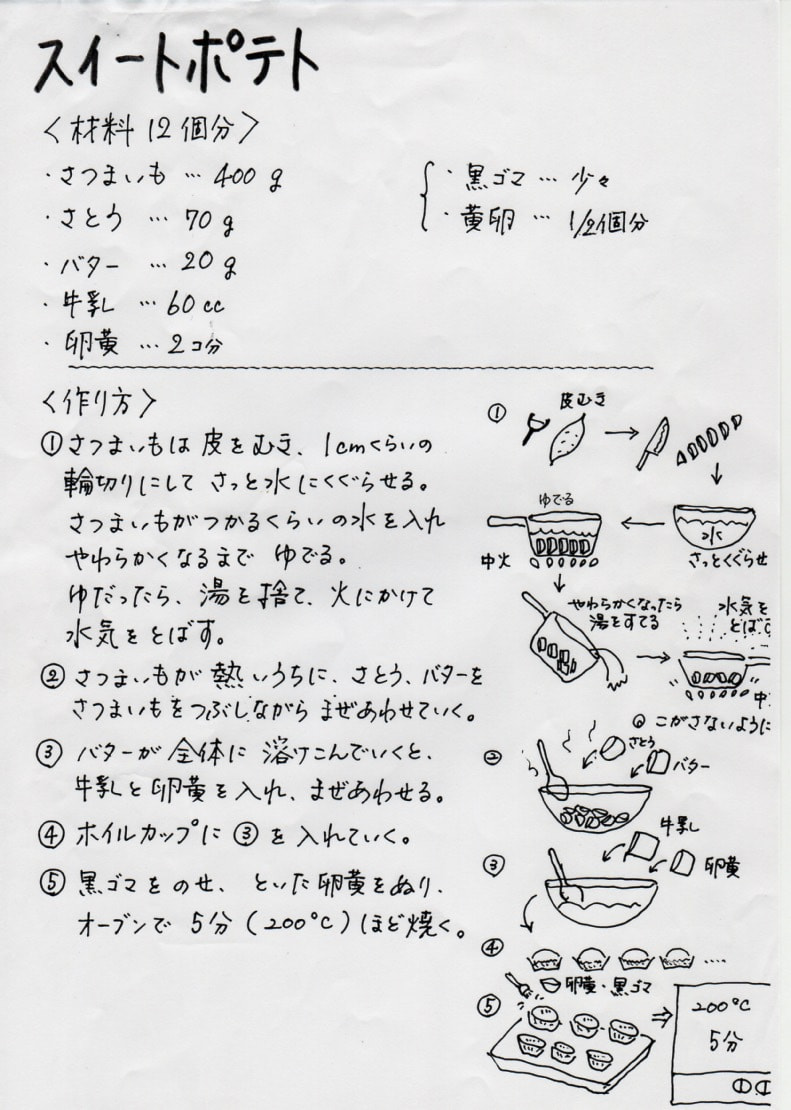 スイートポテト
〈材料 12個分〉
・さつまいも … 400g
・さとう … 70g
・バター … 20g
・牛乳 … 60cc
・卵黄 … 2コ分
・黒ゴマ … 少々
・黄卵 … 1/2個分
〈作り方〉
① さつまいもは皮をむき、1cmくらいの
輪切りにして さっと水にくぐらせる。
さつまいもがつかるくらいの水を入れ
やわらかくなるまで ゆでる。
ゆだったら、湯を捨て、火にかけて
水気をとばす。
② さつまいもが熱いうちに、さとう、バターを
さつまいもをつぶしながら まぜあわせていく。
③ バターが全体に溶けこんでいくと、
牛乳と卵黄を入れ、まぜあわせる。
④ ホイルカップに③を入れていく。
⑤ 黒ゴマをのせ、といた卵黄をぬり、
オーブンで 5分(200℃)ほど焼く。
①
皮むき
ゆでる
水
中火
さっとくぐらせ
やわらかくなったら
湯をすてる
水気を
とばす
中
こがさないように
②
さとう
バター
牛乳
③
卵黄
④
卵黄・黒ゴマ
⑤
200℃
5分